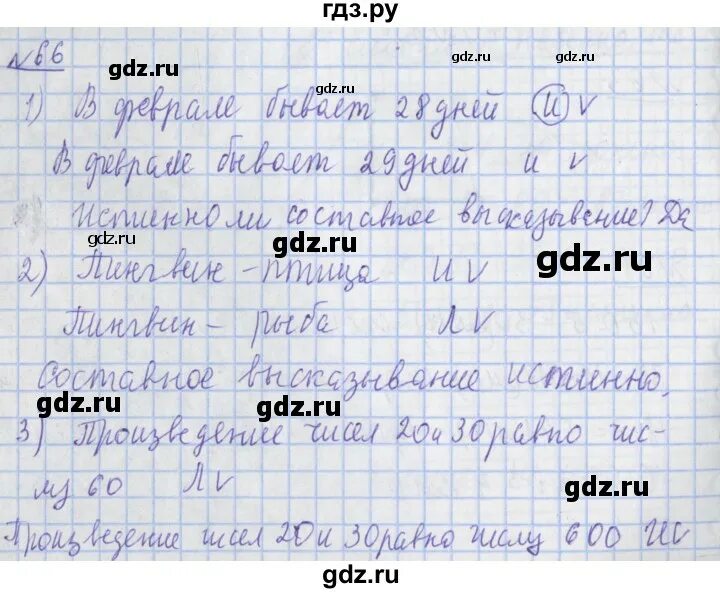 гдз.ру
№66
gdz.ru
gdz.ru
1) В феврале бывает 28 дней И ✓
В феврале бывает 29 дней и ✓
gdz.ru
gdz.ru
Истинно ли составное высказывение? Да
gdz.ru
gdz.ru
gdz.ru
2) Пингвин - птица И ✓
Пингвин - рыба Л ✓
Составное высказывание истинно.
gdz.ru
gdz.ru
3) Произведение чисел 20 и 30 равно чис-
лу 60 Л ✓
gdz.ru
gdz.ru
Произведение чисел 20 и 30 равно числу 600 И ✓
gdz.ru